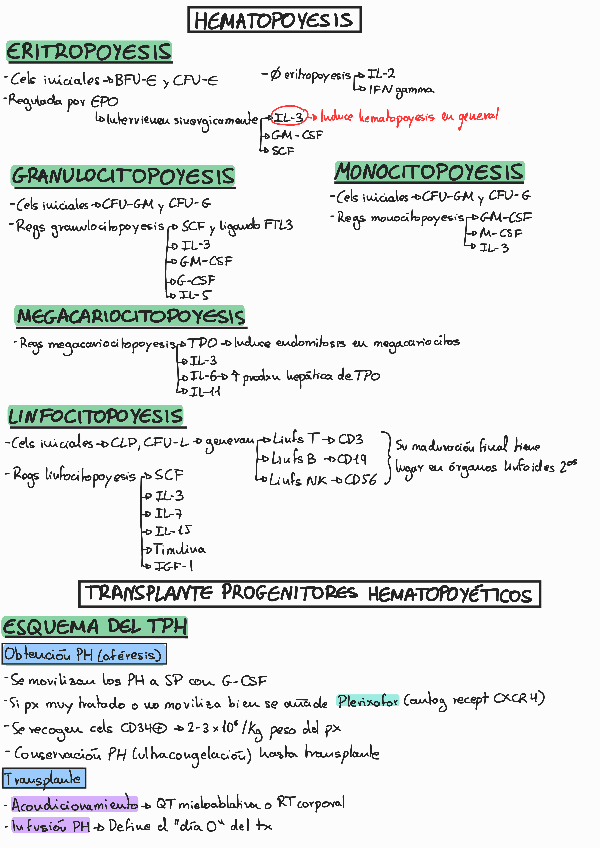 HEMATOPOYESIS
ERITROPOYESIS
- Cels iniciales → BFU-E y CFU-E
- Regulada por EPO
↳ Intervienen sinérgicamente → IL-3 → Induce hematopoyesis en general
→ GM-CSF
→ SCF
- Ø eritropoyesis → IL-2
→ IFN gamma
GRANULOCITOPOYESIS
- Cels iniciales → CFU-GM y CFU-G
- Regs granulocitopoyesis → SCF y ligando FTL3
→ IL-3
→ GM-CSF
→ G-CSF
→ IL-5
MONOCITOPOYESIS
- Cels iniciales → CFU-GM y CFU-G
- Regs monocitopoyesis → GM-CSF
→ M-CSF
→ IL-3
MEGACARIOCITOPOYESIS
- Regs megacariocitopoyesis → TPO → Induce endomitosis en megacariocitos
→ IL-3
→ IL-6 → ↑ prodxn hepática de TPO
→ IL-11
LINFOCITOPOYESIS
- Cels iniciales → CLP, CFU-L → generan → Linfs T → CD3
→ Linfs B → CD19
→ Linfs NK → CD56
Su maduración final tiene
lugar en órganos linfoides 2os
- Regs linfocitopoyesis → SCF
→ IL-3
→ IL-7
→ IL-15
→ Timulina
→ IGF-1
TRANSPLANTE PROGENITORES HEMATOPOYÉTICOS
ESQUEMA DEL TPH
Obtención PH (aféresis)
- Se movilizan los PH a SP con G-CSF
- Si px muy tratado o no moviliza bien se añade Plerixafor (antag recept CXCR4)
- Se recogen cels CD34⊕ → 2-3 × 10⁶/Kg peso del px
- Conservación PH (ultracongelación) hasta transplante
Transplante
- Acondicionamiento → QT mieloablativa o RT corporal
- Infusión PH → Define el "día 0" del tx